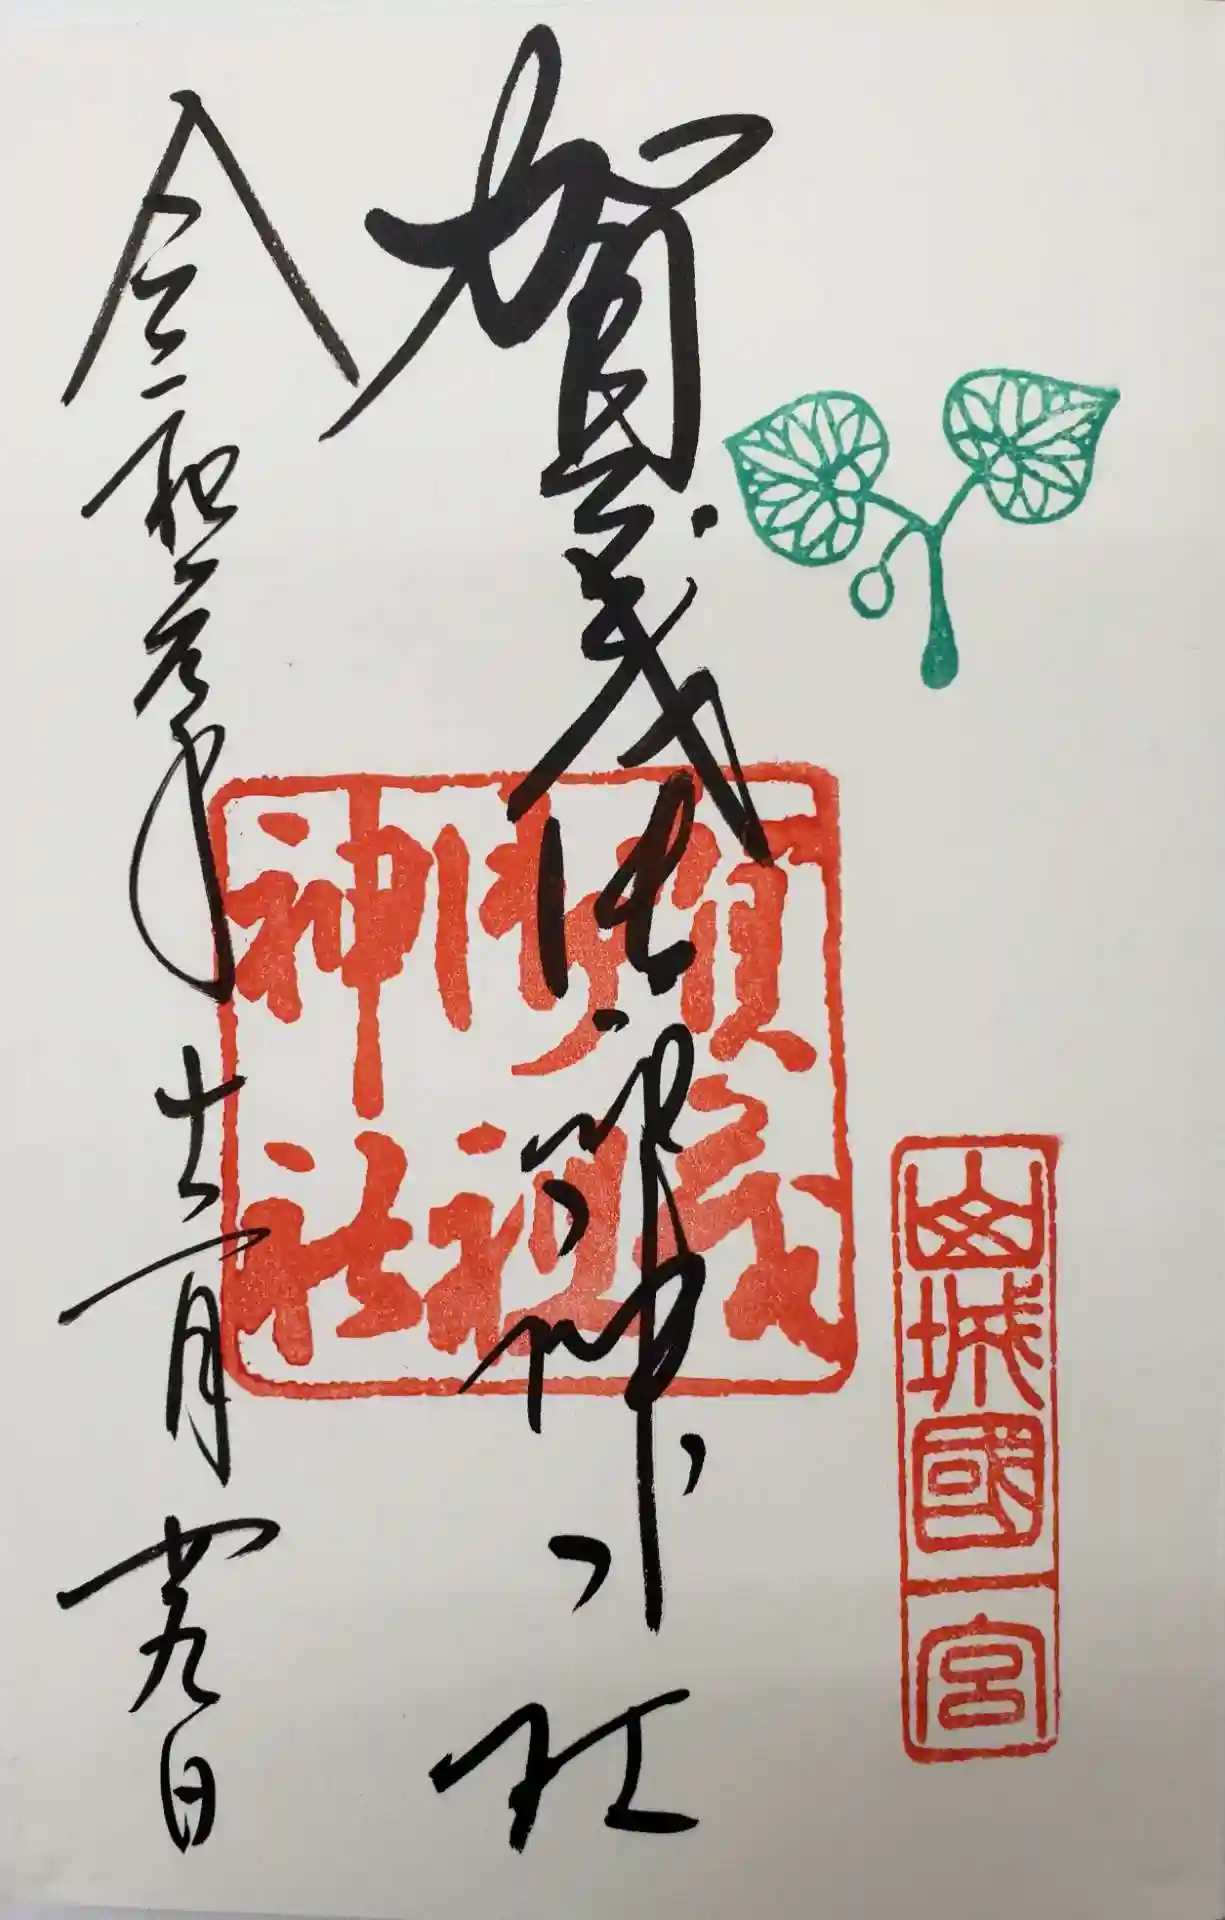 山城國一宮
賀茂御祖神社
賀茂
御祖
神社
令和元年十二月廿九日